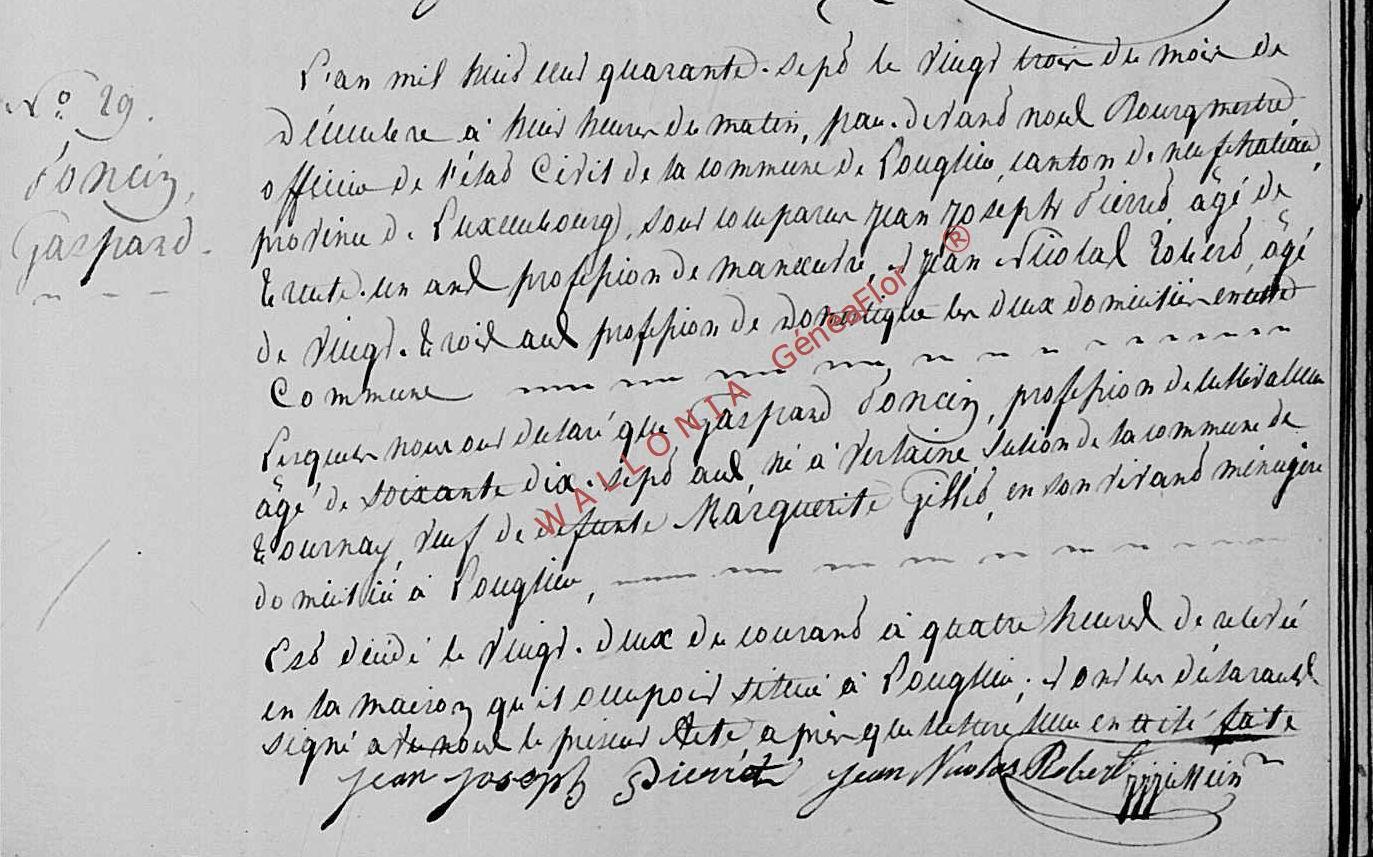 N.° 29.
Poncin,
Gaspard.
L'an mil huit cent quarante-sept le vingt trois du mois de
Décembre à huit heures du matin, par-devant nous Bourgmestre,
officier de l'état Civil de la commune de Longlier, canton de neufchateau,
province de Luxembourg, sont comparus jean joseph Pierret, âgé de
trente-un ans profession de manœuvre, et jean Nicolas Robert, âgé
de vingt-trois ans profession de Domestique les deux domiciliés en cette
Commune
Lesquels nous ont déclaré que Gaspard Poncin, profession de cultivateur
âgé de soixante dix-sept ans, né à Verlaine section de la commune de
tournay, veuf de defunte Marguerite Gillet, en son vivant ménagère
domicilié à Longlier,
Est décédé le vingt-deux du courant à quatre heures de relevée
en la maison qu'il occupoit située à Longlier; et ont les déclarants
signé avec nous le présent Acte, après que lecture leur en a été faite
jean joseph Pierret jean Nicolas Robert
WALLONIA GéneaFlor ®